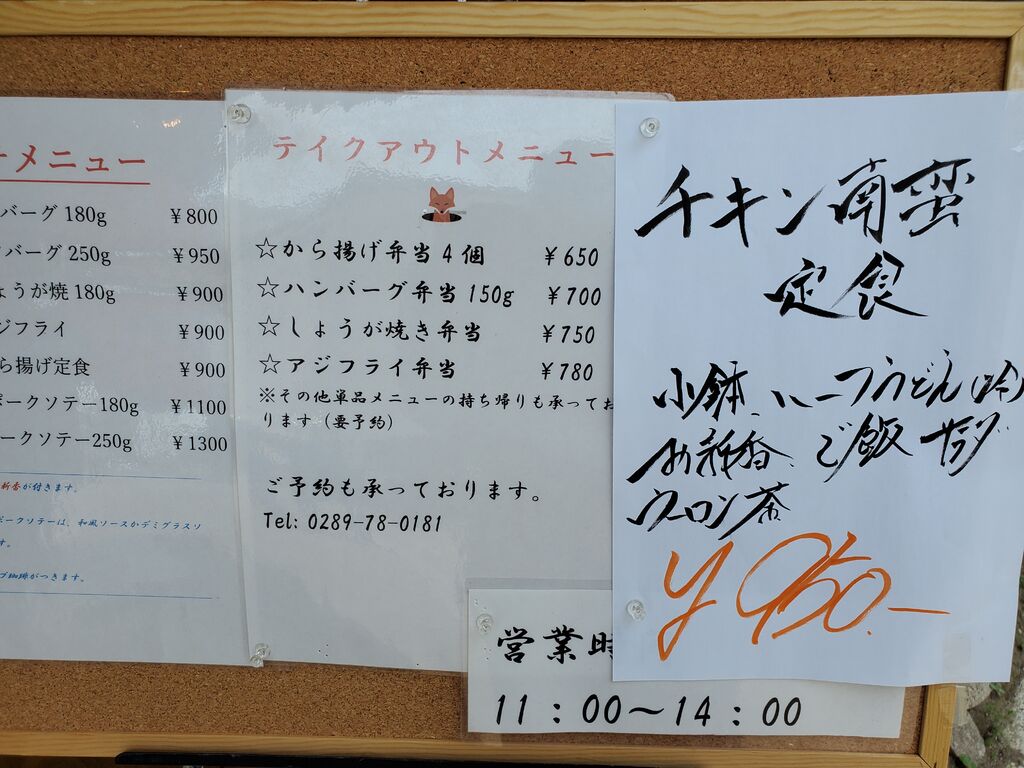 メニュー
バーグ 180g ￥800
バーグ 250g ￥950
ょうが焼 180g ￥900
ジフライ ￥900
ら揚げ定食 ￥900
ポークソテー180g ￥1100
ークソテー250g ￥1300
新香が付きます。
ポークソテーは、和風ソースかデミグラスソ
す。
プ珈琲がつきます。
テイクアウトメニュー
☆から揚げ弁当 4 個 ￥650
☆ハンバーグ弁当 150g ￥700
☆しょうが焼き弁当 ￥750
☆アジフライ弁当 ￥780
※その他単品メニューの持ち帰りも承ってお
ります（要予約）
ご予約も承っております。
Tel: 0289-78-0181
営業時
11：00～14：00
チキン南蛮
定食
小鉢、ハーフうどん(冷)
お新香、ご飯
ウーロン茶
￥950.-